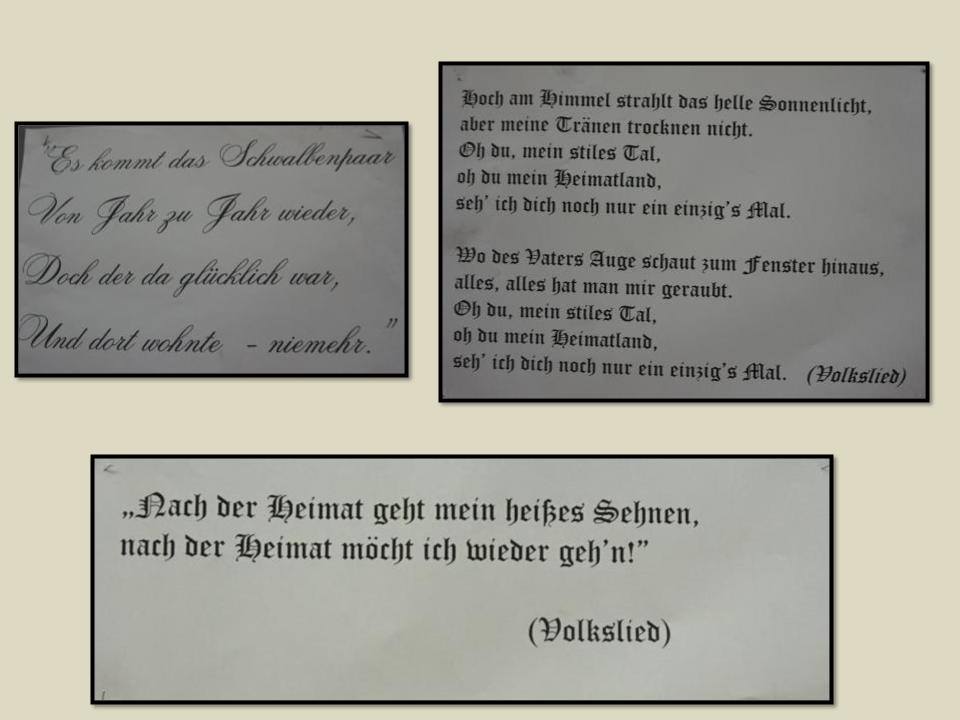 "Es kommt das Schwalbenpaar
Von Jahr zu Jahr wieder,
Doch der da glücklich war,
Und dort wohnte - niemehr."
Hoch am Himmel strahlt das helle Sonnenlicht,
aber meine Tränen trocknen nicht.
Oh du, mein stiles Tal,
oh du mein Heimatland,
seh' ich dich noch nur ein einzig's Mal.
Wo des Vaters Auge schaut zum Fenster hinaus,
alles, alles hat man mir geraubt.
Oh du, mein stiles Tal,
oh du mein Heimatland,
seh' ich dich noch nur ein einzig's Mal. (Volkslied)
„Nach der Heimat geht mein heißes Sehnen,
nach der Heimat möcht ich wieder geh'n!"
(Volkslied)